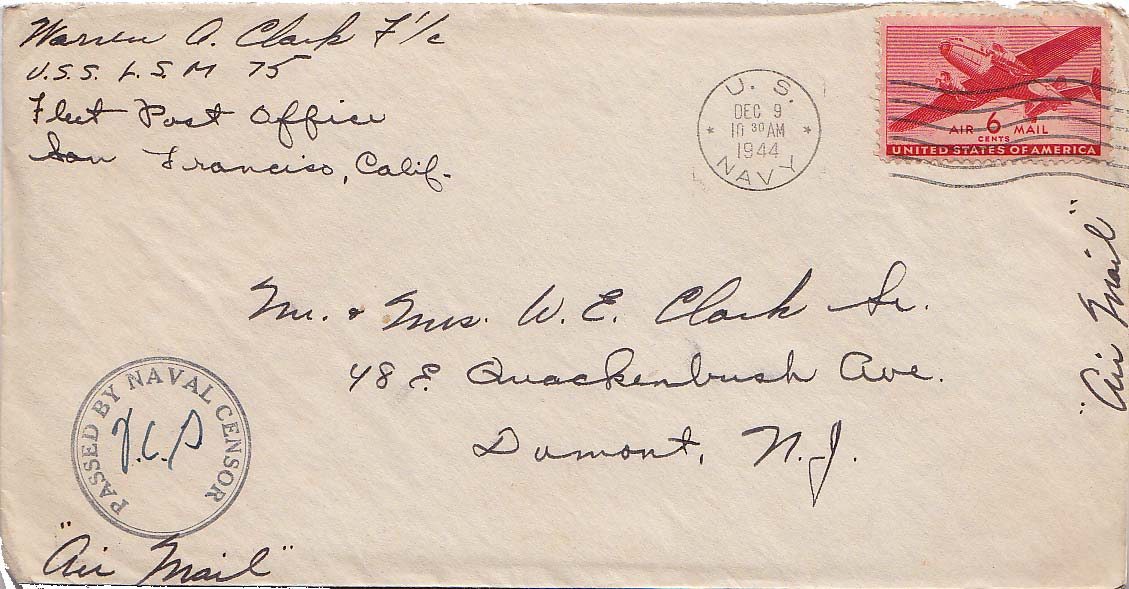 Warren A. Clark F 1/c
U.S.S. L.S.M 75
Fleet Post Office
San Franciso, Calif.
U. S.
DEC 9
10 30 AM
1944
NAVY
AIR 6 MAIL
CENTS
UNITED STATES OF AMERICA
"Air Mail"
Mr. & Mrs. W. E. Clark Sr.
48 E. Quackenbush Ave.
Dumont, N.J.
PASSED BY NAVAL CENSOR
"Air Mail"